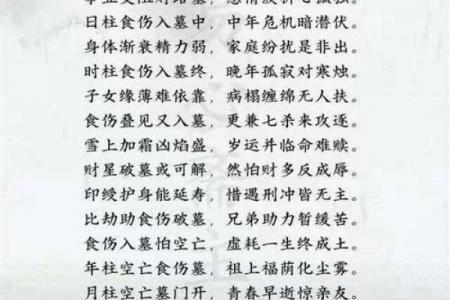 日柱食伤入墓中，中年危机暗潜伏。
身体渐衰精力弱，家庭纷扰是非出。
时柱食伤入墓终，晚年孤寂对寒烛。
子女缘薄难依靠，病榻缠绵无人扶。
食伤叠见又入墓，更兼七杀来攻逐。
雪上加霜凶焰盛，岁运并临命难赎。
财星破墓或可解，然怕财多反成辱。
印绶护身能延寿，惜遇刑冲皆无主。
比劫助食伤破墓，兄弟助力暂缓苦。
食伤入墓怕空亡，虚耗一生终成土。
年柱空亡食伤墓，祖上福荫化尘雾。
月柱空亡墓门开，青春早逝惊亲友。